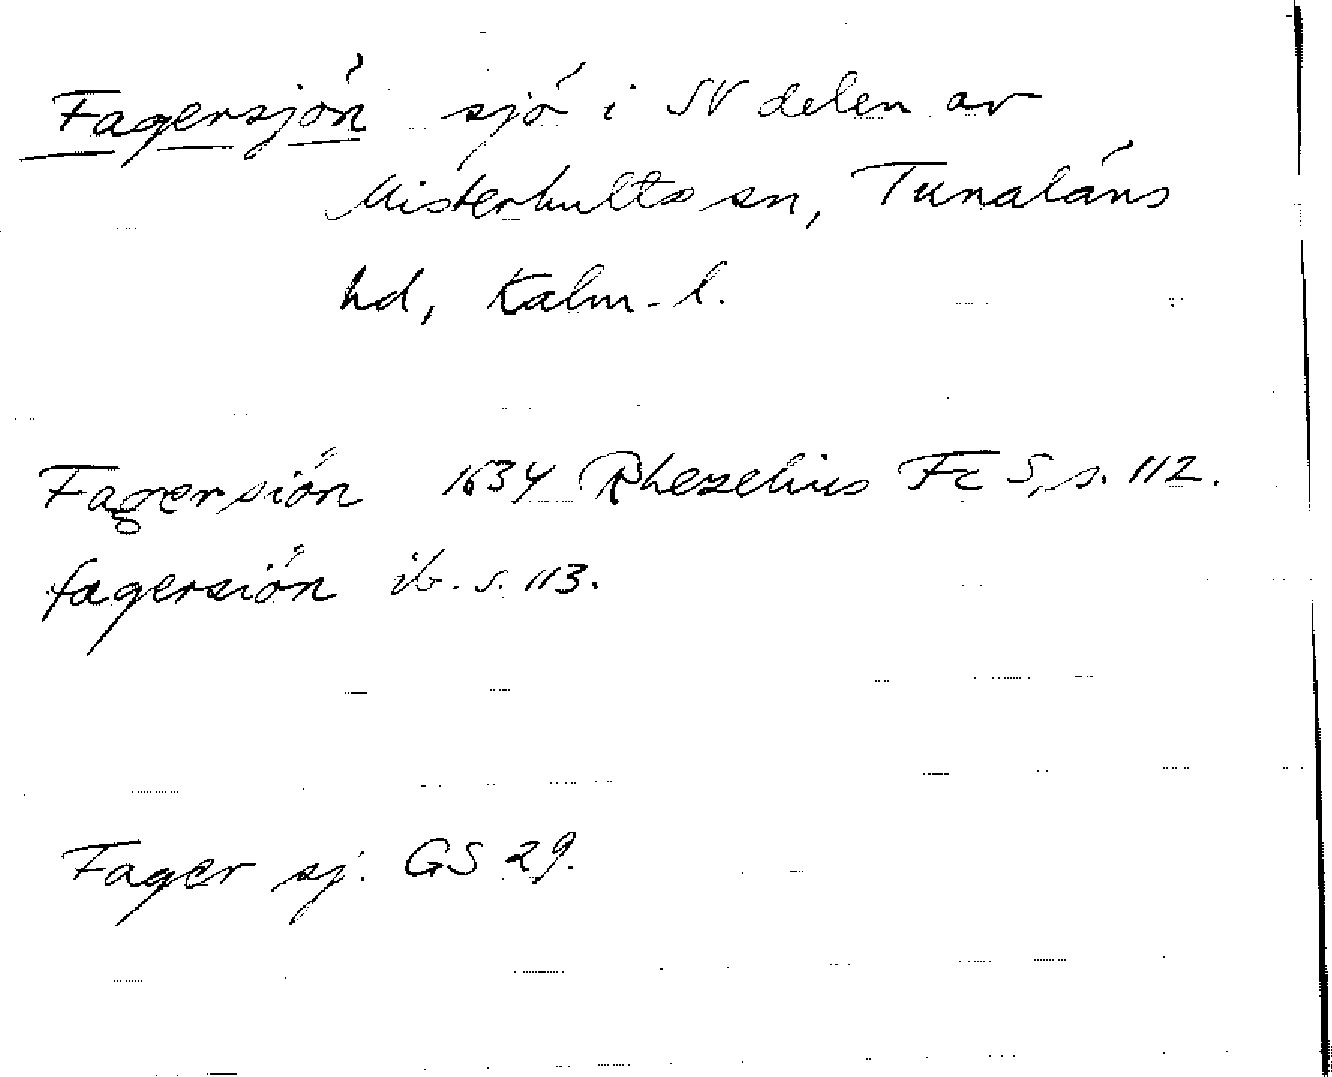 Fagersjön sjö i SV delen av
Misterhults sn, Tunaläns
hd, Kalm. l.
Fagersiön 1634 Rhezelius Fc 5, s. 112.
fagersiön ib. s. 113.
Fager sj. GS 29.